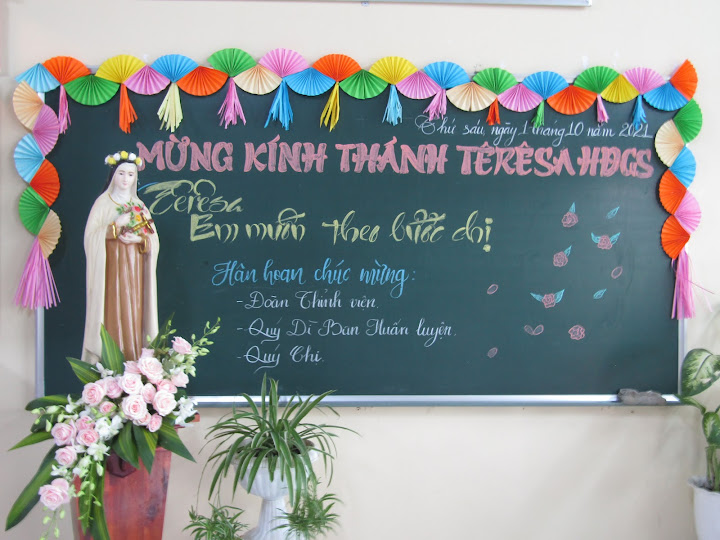 Thứ sáu, ngày 1 tháng 10 năm 2021
MỪNG KÍNH THÁNH TÊRÊSA HĐGS
Têrêsa
Em muốn theo bước chị
Hân hoan chúc mừng:
- Đoàn Thỉnh viên.
- Quý Dì Ban Huấn luyện.
- Quý Chị.